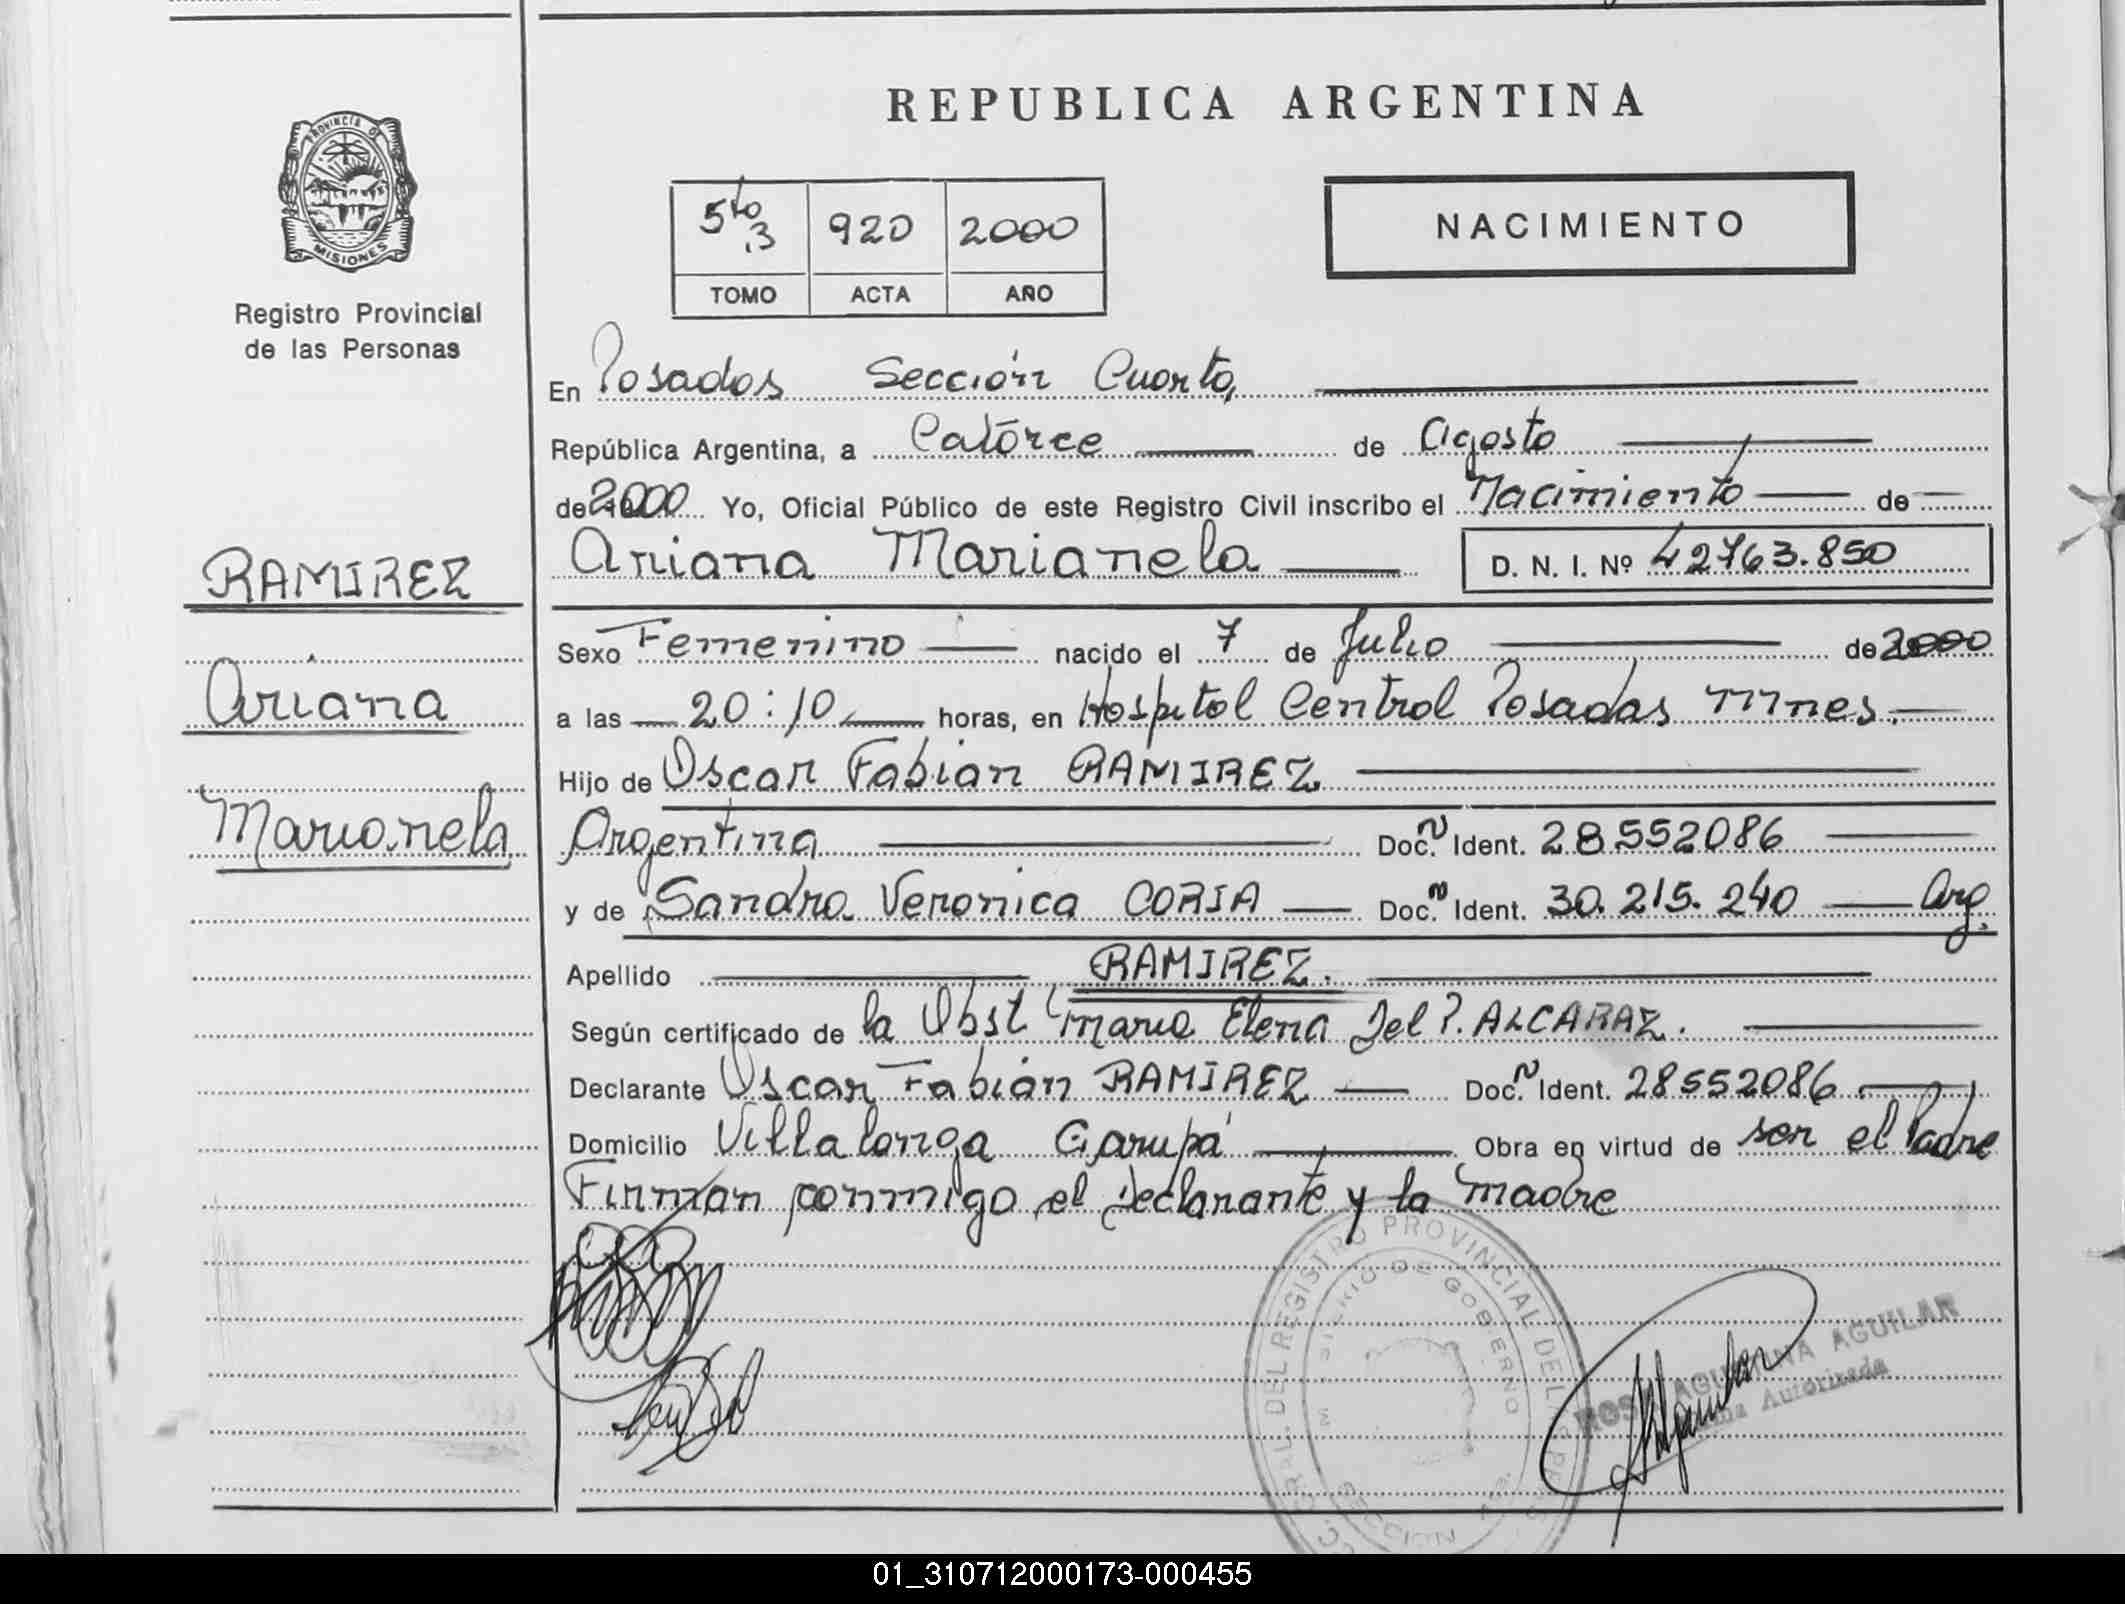 PROVINCIA DE
MISIONES
Registro Provincial
de las Personas
RAMIREZ
Ariana
Marianela
REPUBLICA ARGENTINA
5to .3 920 2000
TOMO ACTA AÑO
NACIMIENTO
En Posadas Sección Cuarta,
República Argentina, a Catorce de Agosto
de 2000 Yo, Oficial Público de este Registro Civil inscribo el Nacimiento de
Ariana Marianela D. N. I. Nº 42763.850
Sexo Femenino nacido el 7 de Julio de 2000
a las 20:10 horas, en Hospital Central Posadas Mnes.
Hijo de Oscar Fabian RAMIREZ
Argentina Doc. N Ident. 28552086
y de Sandra Veronica CORIA Doc. N Ident. 30.215.240 Arg.
Apellido RAMIREZ.
Según certificado de la Obst Maria Elena Del P. ALCARAZ.
Declarante Oscar Fabián RAMIREZ Doc. N Ident. 28552086.
Domicilio Villalonga Garupá Obra en virtud de ser el Padre
Firman conmigo el Declarante y la Madre
DEL REGISTRO PROVINCIAL DE LAS
DE GOBIERNO
SECCION
AGUSTINA AGUILAR
Autorizada
01_310712000173-000455